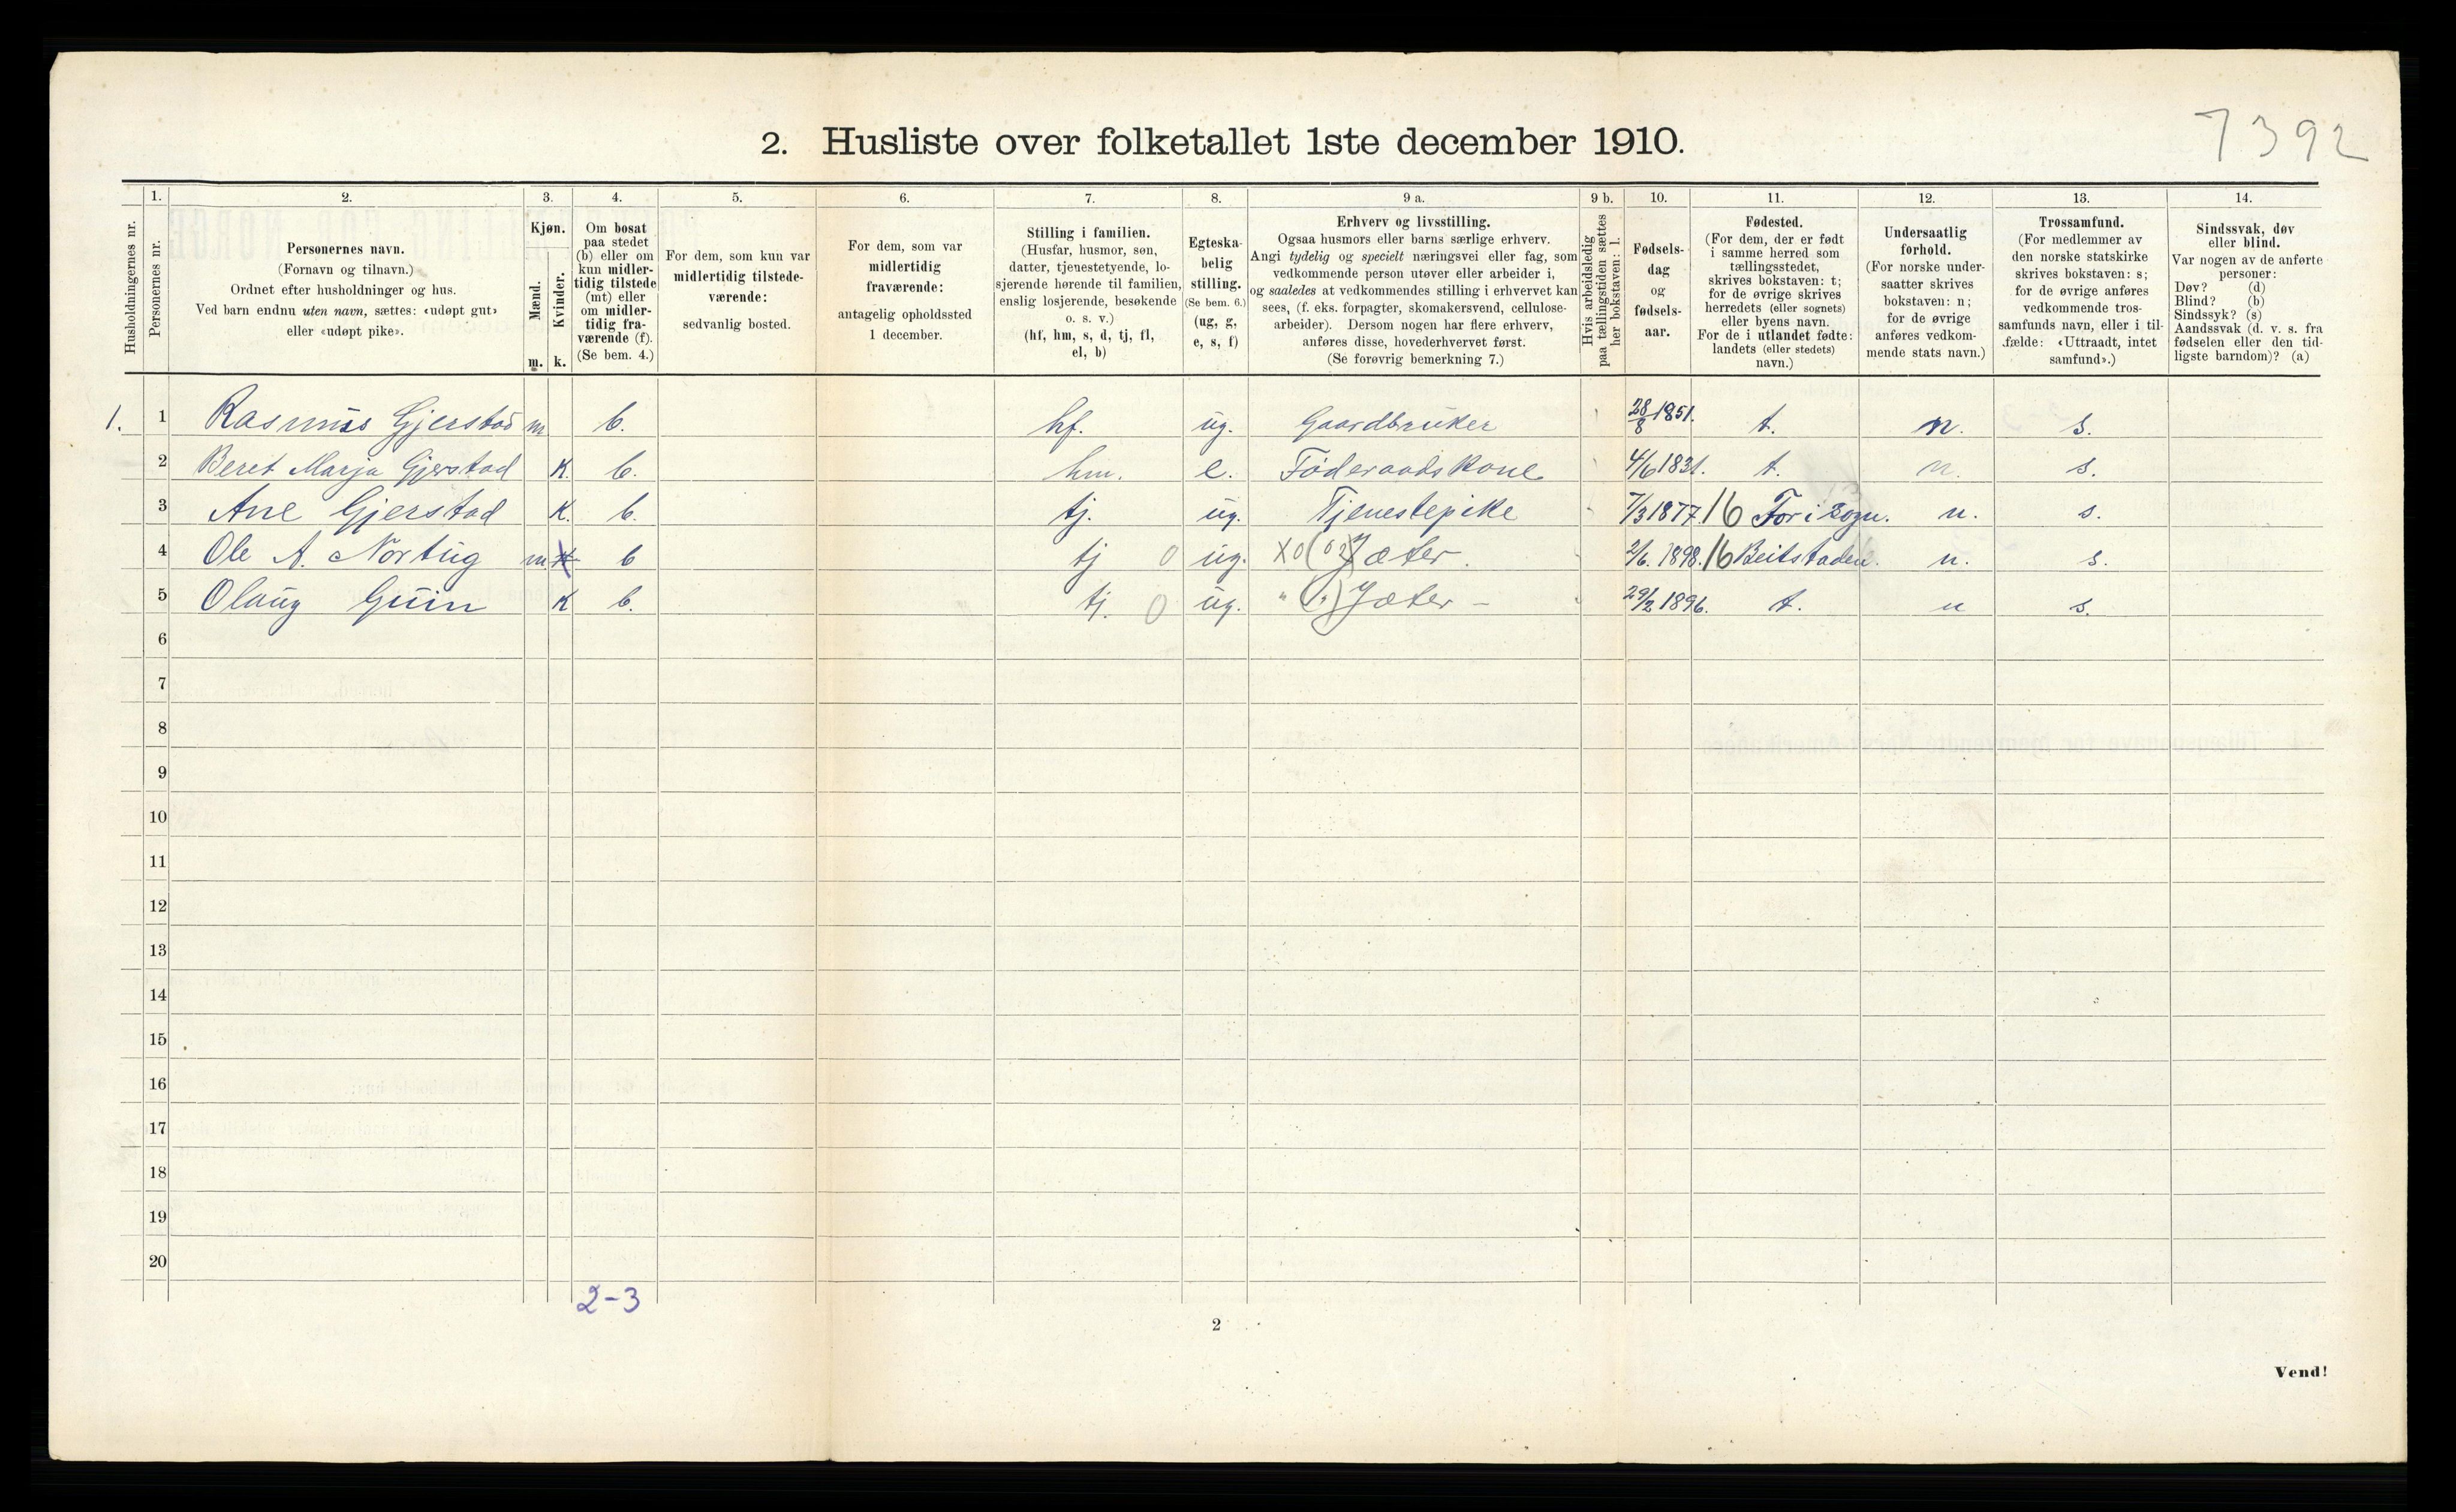 7392
2. Husliste over folketallet 1ste december 1910.
Husholdningernes nr.
1.
Personernes nr.
2.
Personernes navn.
(Fornavn og tilnavn.)
Ordnet efter husholdninger og hus.
Ved barn endnu uten navn, sættes: «udøpt gut»
eller «udøpt pike».
3.
Kjøn.
Mænd.
m.
Kvinder.
k.
4.
Om bosat
paa stedet
(b) eller om
kun midler-
tidig tilstede
(mt) eller
om midler-
tidig fra-
værende (f).
(Se bem. 4.)
5.
For dem, som kun var
midlertidig tilstede-
værende:
sedvanlig bosted.
6.
For dem, som var
midlertidig
fraværende:
antagelig opholdssted
1 december.
7.
Stilling i familien.
(Husfar, husmor, søn,
datter, tjenestetyende, lo-
sjerende hørende til familien,
enslig losjerende, besøkende
o. s. v.)
(hf, hm, s, d, tj, fl,
el, b)
8.
Egteska-
belig
stilling.
(Se bem. 6.)
(ug, g,
e, s, f)
9 a.
Erhverv og livsstilling.
Ogsaa husmors eller barns særlige erhverv.
Angi tydelig og specielt næringsvei eller fag, som
vedkommende person utøver eller arbeider i,
og saaledes at vedkommendes stilling i erhvervet kan
sees, (f. eks. forpagter, skomakersvend, cellulose-
arbeider). Dersom nogen har flere erhverv,
anføres disse, hovederhvervet først.
(Se forøvrig bemerkning 7.)
9 b.
Hvis arbeidsledig
paa tællingstiden sættes
her bokstaven: l.
10.
Fødsels-
dag
og
fødsels-
aar.
11.
Fødested.
(For dem, der er født
i samme herred som
tællingsstedet,
skrives bokstaven: t;
for de øvrige skrives
herredets (eller sognets)
eller byens navn.
For de i utlandet fødte:
landets (eller stedets)
navn.)
12.
Undersaatlig
forhold.
(For norske under-
saatter skrives
bokstaven: n;
for de øvrige
anføres vedkom-
mende stats navn.)
13.
Trossamfund.
(For medlemmer av
den norske statskirke
skrives bokstaven: s;
for de øvrige anføres
vedkommende tros-
samfunds navn, eller i til-
fælde: «Uttraadt, intet
samfund».)
14.
Sindssvak, døv
eller blind.
Var nogen av de anførte
personer:
Døv? (d)
Blind? (b)
Sindssyk? (s)
Aandssvak (d. v. s. fra
fødselen eller den tid-
ligste barndom)? (a)
1. 1 Rasmus Gjerstad m b. hf. ug. Gaardbruker 28/8 1851. t. n. s.
2 Beret Marja Gjerstad K. b. hm. e. Føderaadskone 4/6 1831. t. n. s.
3 Ane Gjerstad K. b. tj. ug. Tjenestepike 7/3 1877. 16 For i Sogn. n. s.
4 Ole A. Nortug m. K b tj 0 ug. X0 Jæter. 2/6. 1898. 16 Beitstaden. n. s.
5 Olaug Guin K b. tj. 0 ug. " Jæter - 29/2 1896. t. n s.
6
7
8
9
10
11
12
13
14
15
16
17
18
19
20
2-3
2
Vend!